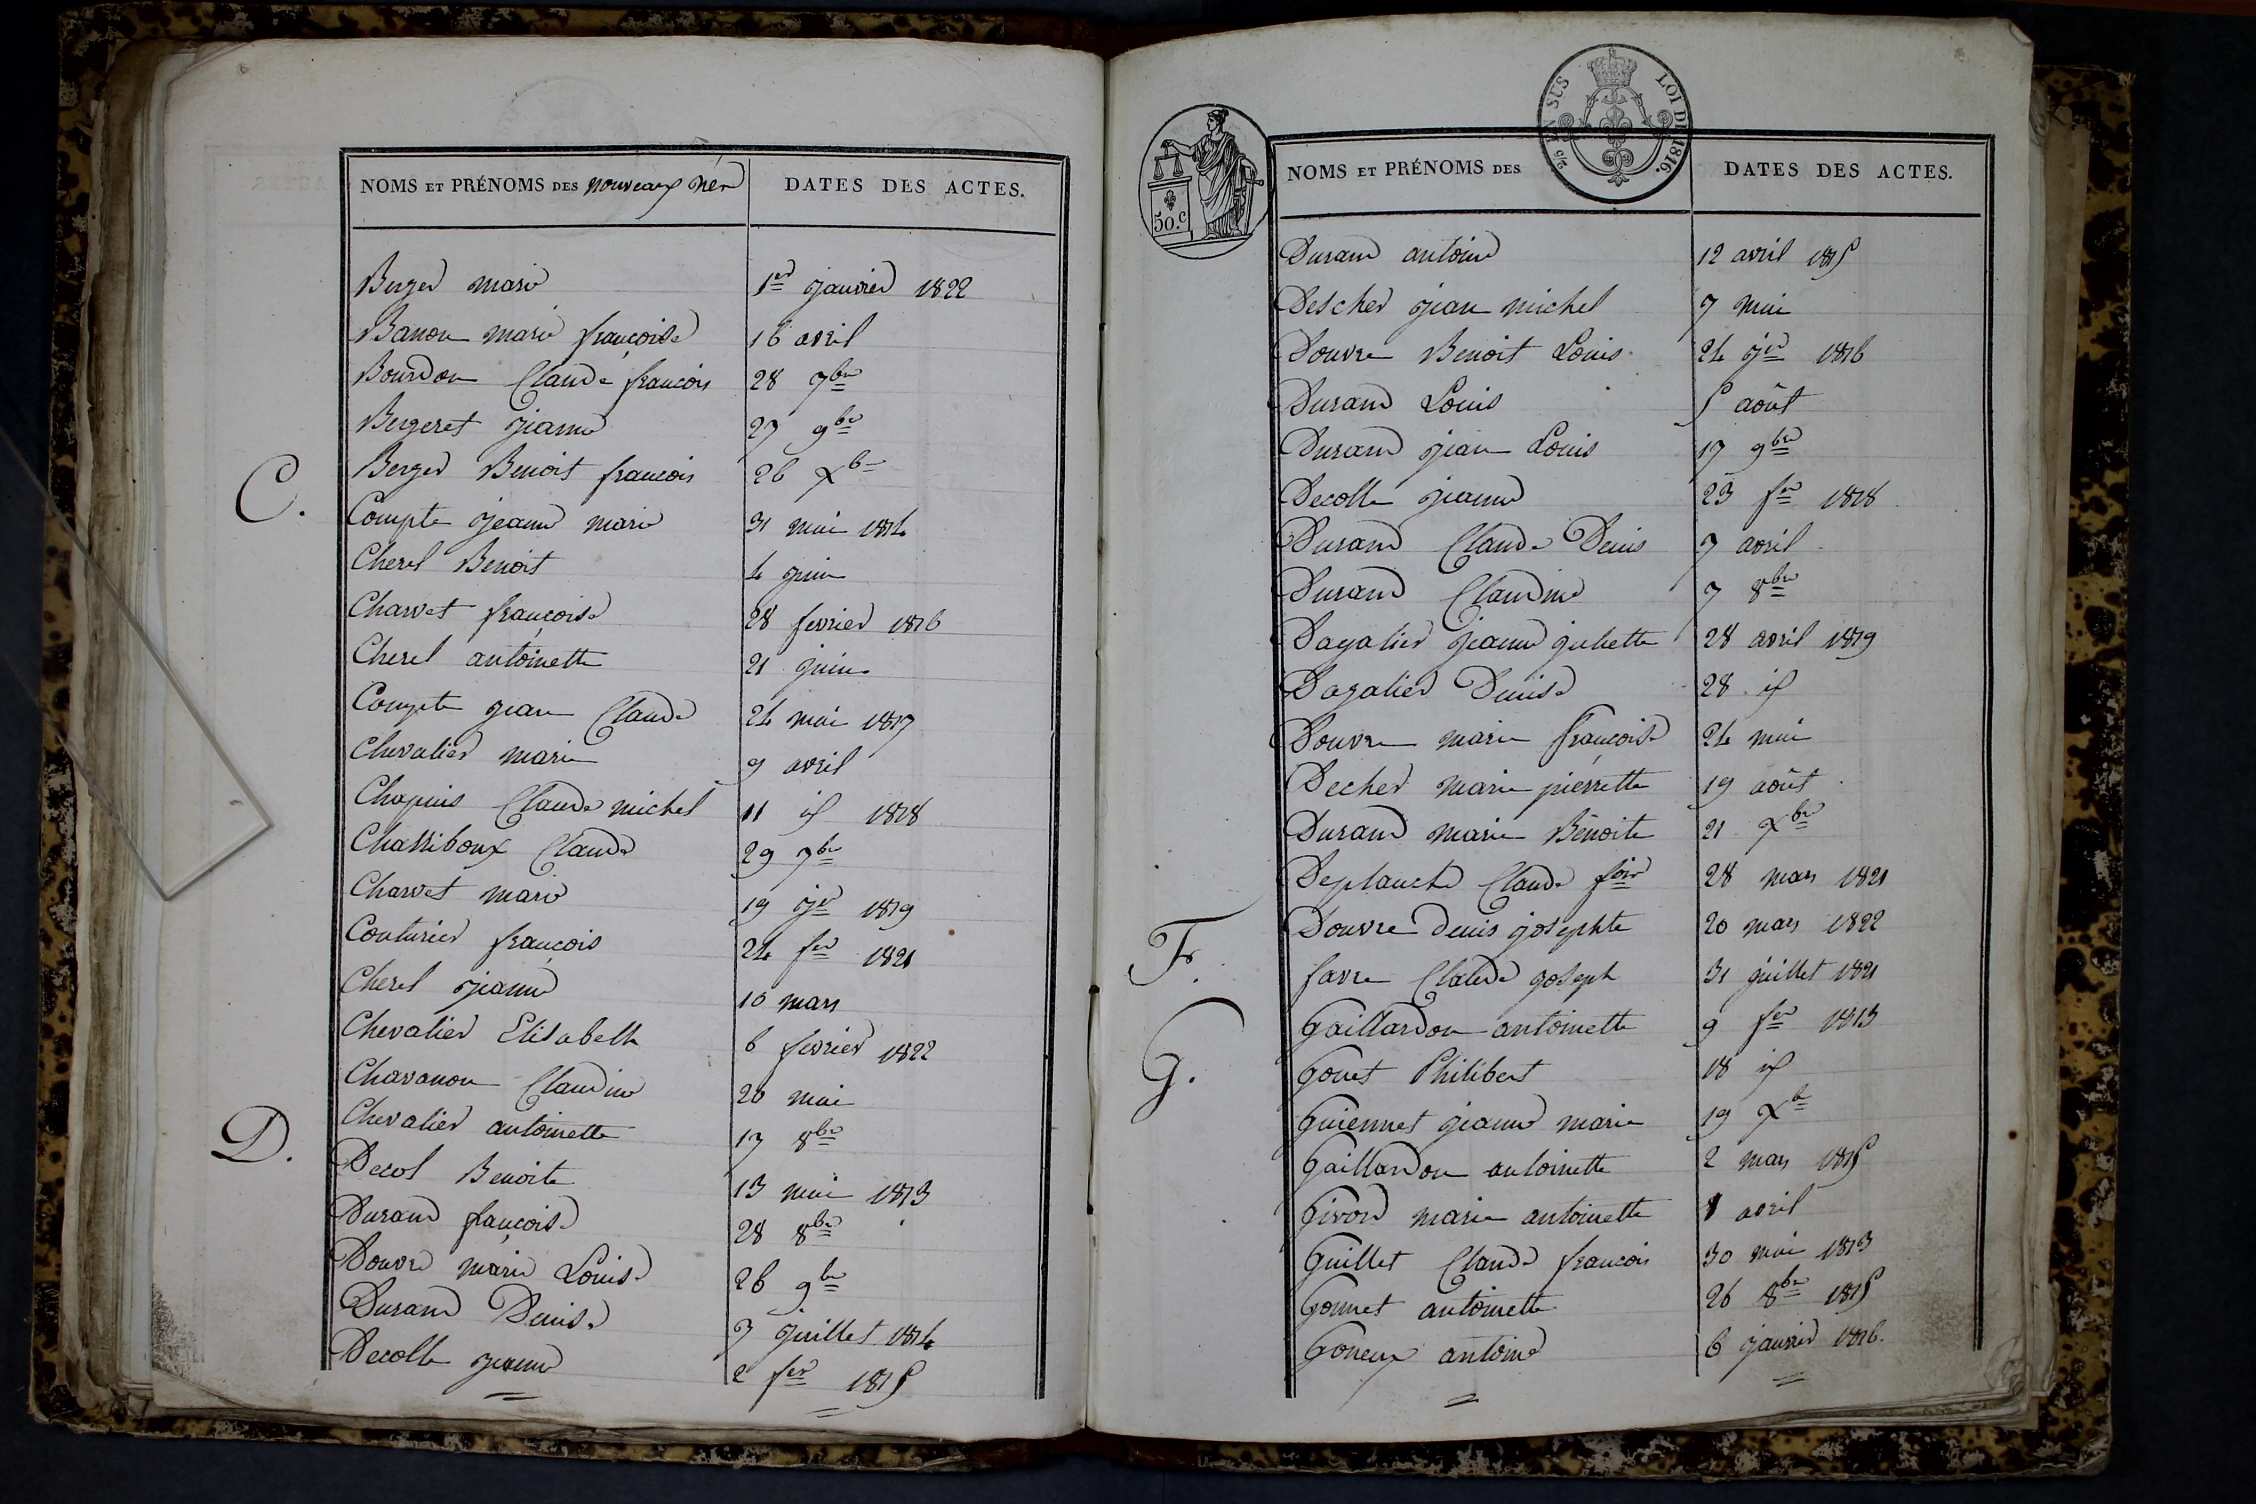 NOMS ET PRÉNOMS DES nouveaux nés DATES DES ACTES.
Berger marie 1er janvier 1822
Banon marie françoise 16 avril
Bourdon Claude françois 28 7bre
Bergeret jeanne 27 9bre
Berger Benoit françois 26 Xb
C.
Compte jeanne marie 31 mai 1814
Cherel Benoit 4 juin
Charvet françoise 28 fevrier 1816
Cherel antoinette 21 juin
Compte jean Claude 24 mai 1817
Chevalier marie 9 avril
Chapuis Claude michel 11 id 1818
Chassiboux Claude 29 7bre
Charvet marie 19 jer 1819
Couturier françois 24 fer 1821
Cherel jeanne 10 mars
Chevalier Elisabeth 6 fevrier 1822
Chavanon Claudine 20 mai
Chevalier antoinette 17 8bre
D.
Decol Benoite 13 mai 1813
Durand françoise 28 8bre
Douvre marie Louise 26 9bre
Durand Denise 3 juillet 1814
Decolle jeanne 2 fer 1815
50.c
LOI DE 1816.
NOMS ET PRÉNOMS DES DATES DES ACTES.
Durand antoine 12 avril 1815
Descher jean michel 7 mai
Douvre Benoit Louis 24 jer 1816
Durand Louis 5 août
Durand jean Louis 17 9bre
Decolle jeanne 23 fer 1818
Durand Claude Denis 7 avril
Durand Claudine 7 8bre
Dagalier jeanne juliette 28 avril 1819
Dagalier Denise 28 id
Douvre marie françoise 24 mai
Decher marie pierrette 19 août
Durand marie Benoite 21 Xbre
Deplanche Claude fois 28 mars 1821
Douvre Denis josephte 20 mars 1822
F.
favre Claude joseph 31 juillet 1821
G.
Gaillardon antoinette 9 fer 1813
Gouet Philibert 18 id
Guiennet jeanne marie 19 Xb
Gaillardon antoinette 2 mars 1815
Givord marie antoinette 1 avril
Guillet Claude françois 30 mai 1813
Gonnet antoinette 26 8bre 1815
Goneux antoine 6 janvier 1816.